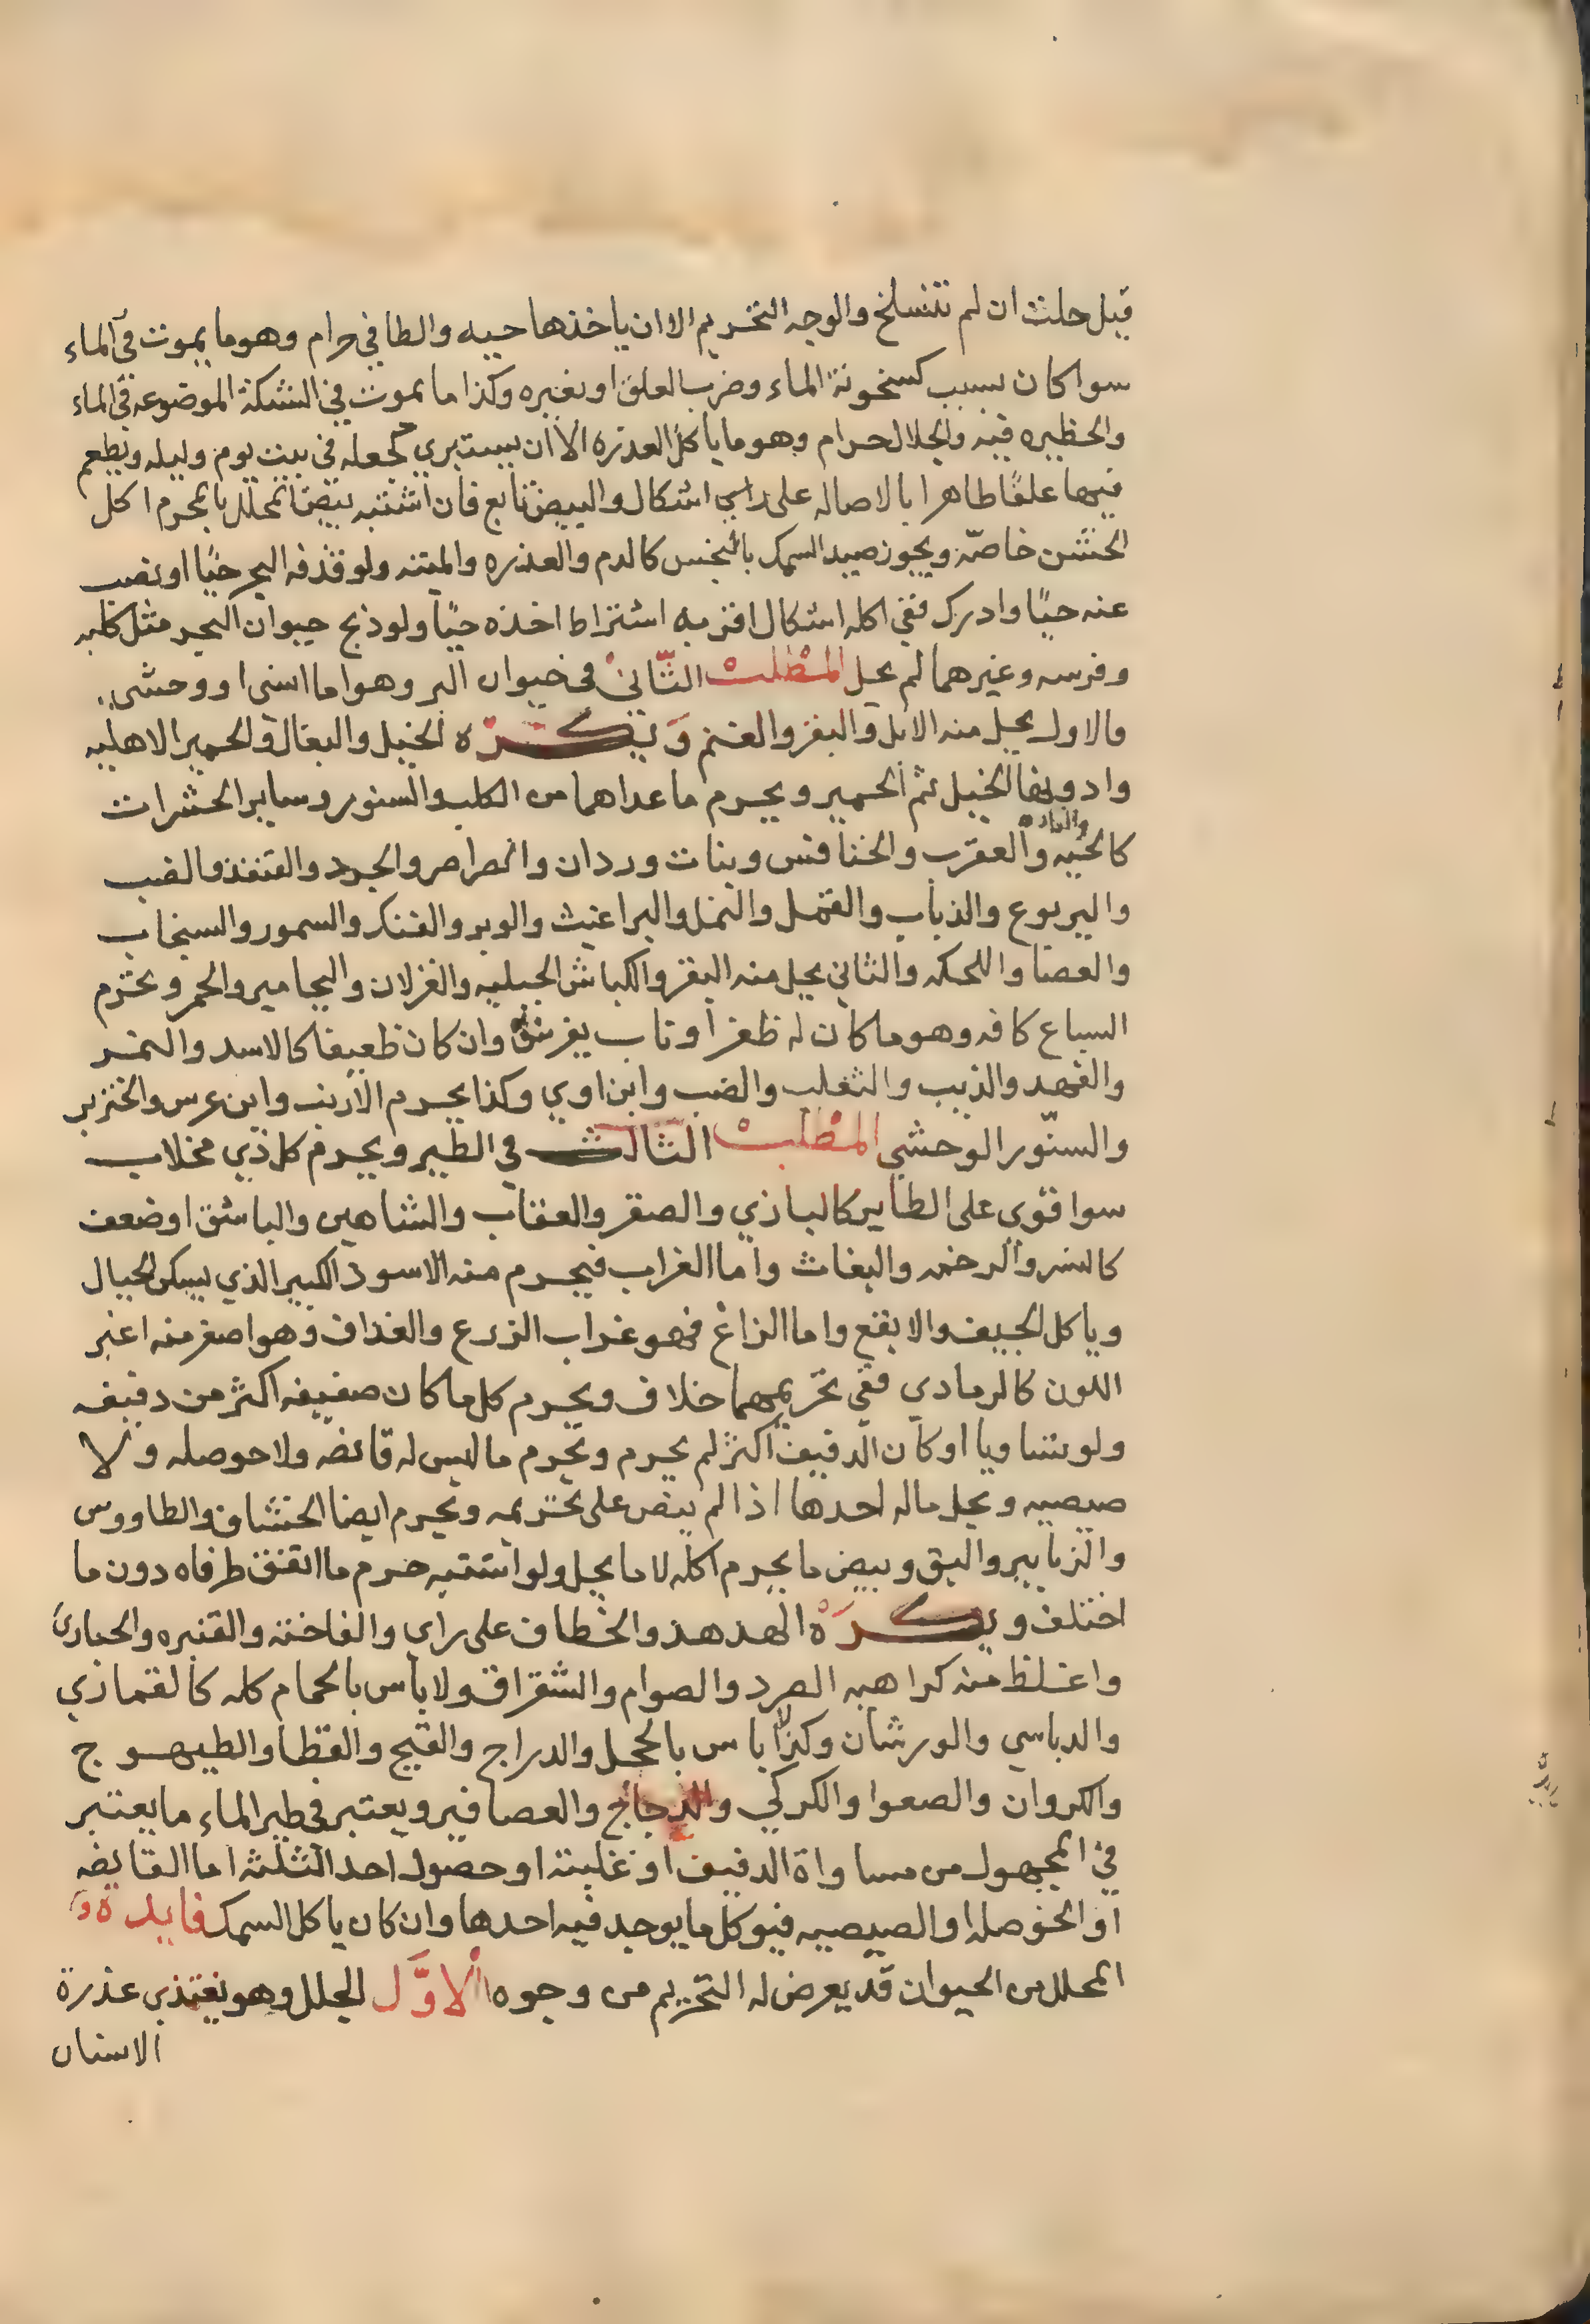 قيل حلت ان لم تنسلخ والوجه التحريم الا ان ياخذها حيه والطافي حرام وهو ما يموت في الماء
سوا كان بسبب كسخونة الماء وضرب العلق او بغيره وكذا ما يموت في الشبكة الموضوعه في الماء
والحظيره فيه والجلال حرام وهو ما ياكل العذره الا ان يستبري بجعله في بيت يوم وليله ويطعم
فيها علفًا طاهرا بالاصاله على راي اشكال والبيض تابع فان اشتبه بيض المحلل بالمحرم اكل
الخشن خاصّه ويجوز صيد السمك بالنجس كالدم والعذره والميته ولو قذفه البحر حيًا او نضب
عنه حيًا وادرك ففي اكله اشكال اقربه اشتراط اخذه حيًا ولو ذبح حيوان البحر مثل كلبه
وفرسه وغيرهما لم يحل المطلب الثّاني في حيوان البر وهو اما انسى او وحشى
فالاول يحل منه الابل والبقر والغنم وَيكرَه الخيل والبغال والحمير الاهليه
وادونها الخيل ثم الحمير ويحرم ما عداهما من الكلب والسنور وساير الحشرات
كالحيه والفاره والعقرب والخنافس وبنات وردان والصراصر والجرد والقنفذ والضب
واليربوع والذباب والقمل والنمل والبراغيث والوبر والفنك والسمور والسنجاب
والعضا واللحكه والثاني يحل منه البقر والكباش الجبليه والغزلان واليحامير والحمر ويحرم
السباع كافه وهو ما كان له ظفر او ناب يفرسه وان كان ضعيفا كالاسد والنمر
والفهد والذيب والثعلب والضب وابن اوي وكذا يحرم الارنب وابن عرس والخنزير
والسنّور الوحشي المطلب الثّالث في الطير ويحرم كل ذي مخلاب
سوا قوى على الطاير كالبازي والصقر والعقاب والشاهين والباشق او ضعف
كالنسر والرخمه والبغاث واما الغراب فيحرم منه الاسود الكبير الذي يسكن الجبال
وياكل الجيف والابقع واما الزاغ فهو غراب الزرع والغداف وهو اصغر منه اغبر
اللون كالرمادي ففي تحريمهما خلاف ويحرم كل ما كان صفيفه اكثر من دفيفه
ولو تساويا او كان الدفيف اكثر لم يحرم ويحرم ما ليس له قانصه ولا حوصله ولا
صيصيه ويحل ماله احدها اذا لم ينص على تحريمه ويحرم ايضا الخشاف والطاووس
والزنابير والبق وبيض ما يحرم اكله لا ما يحل ولو اشتبه حرم ما اتفق طرفاه دون ما
اختلف ويكرَه الهدهد والخطاف على راي والفاخته والقنبره والحبارى
واغلظ منه كراهيه الصرد والصوام والشقراق ولا باس بالحمام كله كالقماري
والدباسي والورشان وكذا لا باس بالحجل والدراج والقبج والقطا والطيهوج
والكروان والصعوا والكركي والدجاج والعصافير ويعتبر في طير الماء ما يعتبر
في المجهول من مساواة الدفيف او غلبته او حصول احد الثلثه اما القانصه
او الحوصله او الصيصيه فيوكل ما يوجد فيه احدها وان كان ياكل السمك فايدة
المحلل من الحيوان قد يعرض له التحريم من وجوه الاوَّل الجلل وهو يغتذي عذرة
الانسان